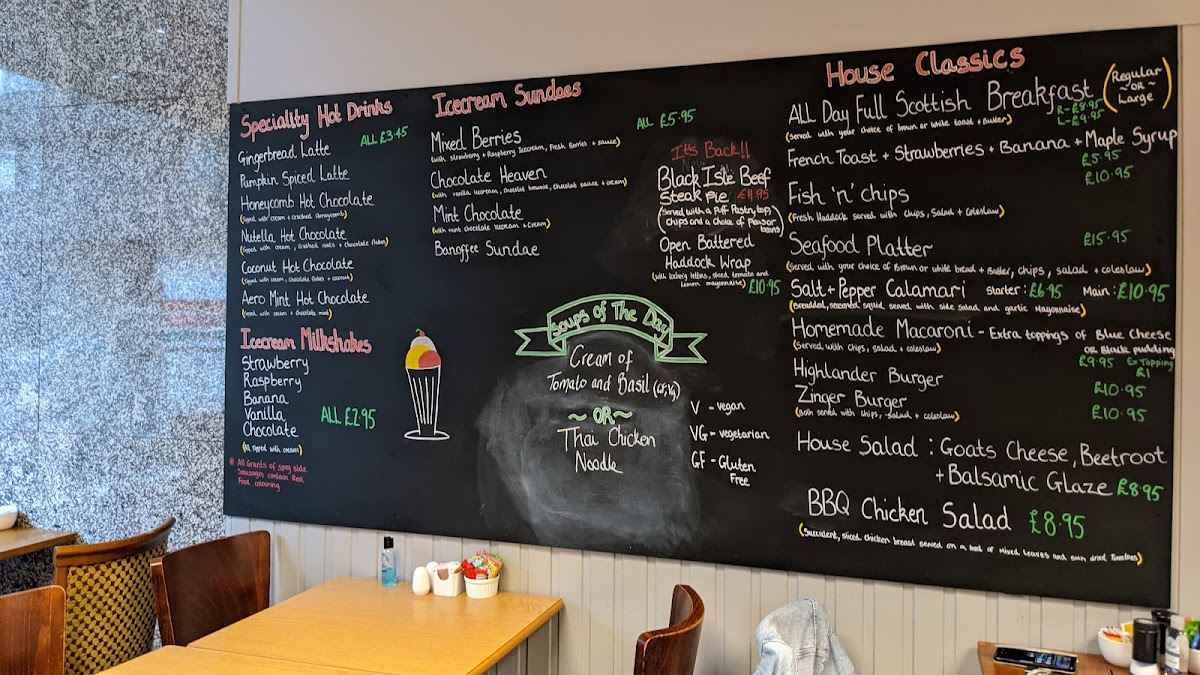 Speciality Hot Drinks
ALL £3.45
Gingerbread Latte
Pumpkin Spiced Latte
Honeycomb Hot Chocolate
(Topped with cream + crushed Honeycomb)
Nutella Hot Chocolate
(Topped with cream, crushed nuts + chocolate flakes)
Coconut Hot Chocolate
(Topped with cream, chocolate flakes + coconut)
Aero Mint Hot Chocolate
(Topped with cream + chocolate mint)
Icecream Milkshakes
Strawberry
Raspberry
Banana
Vanilla
Chocolate
ALL £2.95
(All topped with cream)
* All Grants of spey side
Sausages contain Red
Food colouring
Icecream Sundaes
ALL £5.95
Mixed Berries
(with strawberry + Raspberry Icecream, Fresh Berries + sauce)
Chocolate Heaven
(with vanilla icecream, chocolate brownie, chocolate sauce + cream)
Mint Chocolate
(with mint chocolate icecream + cream)
Banoffee Sundae
It's Back!!
Black Isle Beef
Steak Pie £11.95
(Served with a Puff Pastry top,
chips and a choice of peas or
beans)
Open Battered
Haddock Wrap
(with iceberg lettuce, sliced tomato and
Lemon mayonnaise) £10.95
Soups of The Day
Cream of
Tomato and Basil (GF, VG)
~ OR ~
Thai Chicken
Noodle
V - vegan
VG - vegetarian
GF - Gluten
Free
House Classics
ALL Day Full Scottish Breakfast
(Regular
~ OR ~
Large)
R - £8.95
L - £9.95
(Served with your choice of brown or white toast + butter)
French Toast + Strawberries + Banana + Maple Syrup
£5.95
Fish 'n' chips
£10.95
(Fresh Haddock served with chips, Salad + coleslaw)
Seafood Platter
£15.95
(Served with your choice of Brown or white bread + Butter, chips, salad + coleslaw)
Salt + Pepper Calamari starter: £6.95 Main: £10.95
(Breaded, seasoned squid served with side salad and garlic Mayonnaise)
Homemade Macaroni - Extra toppings of Blue Cheese
OR Black pudding
(Served with chips, salad + coleslaw)
£9.95 Ex Topping
£1
Highlander Burger
£10.95
Zinger Burger
£10.95
(Both served with chips, salad + coleslaw)
House Salad : Goats Cheese, Beetroot
+ Balsamic Glaze £8.95
BBQ Chicken Salad £8.95
(Succulent, sliced chicken breast served on a bed of mixed Leaves and sun dried Tomatoes)